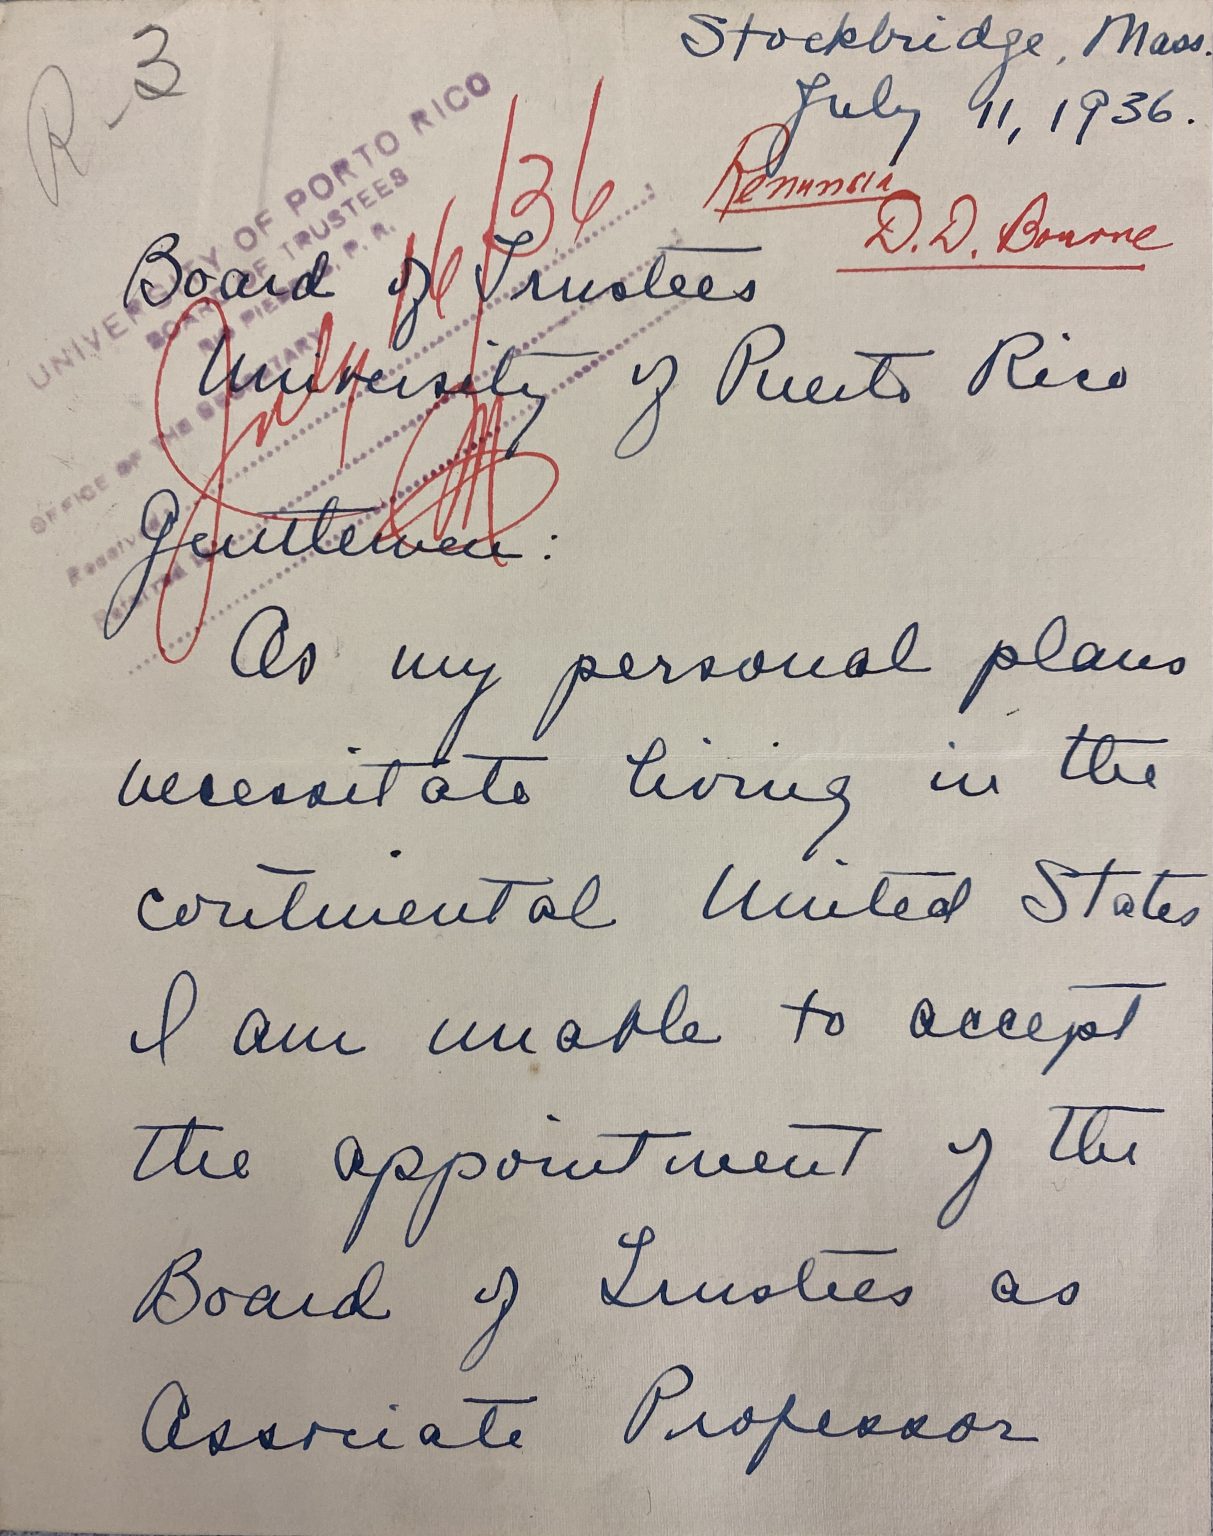 R-3
Stockbridge, Mass.
July 11, 1936.
Renuncia
D. D. Bourne
UNIVERSITY OF PORTO RICO
BOARD OF TRUSTEES
RIO PIEDRAS, P. R.
OFFICE OF THE SECRETARY
Received
Referred to
July 16/36
Board of Trustees
University of Puerto Rico
Gentlemen:
As my personal plans
necessitate living in the
continental United States
I am unable to accept
the appointment of the
Board of Trustees as
Associate Professor